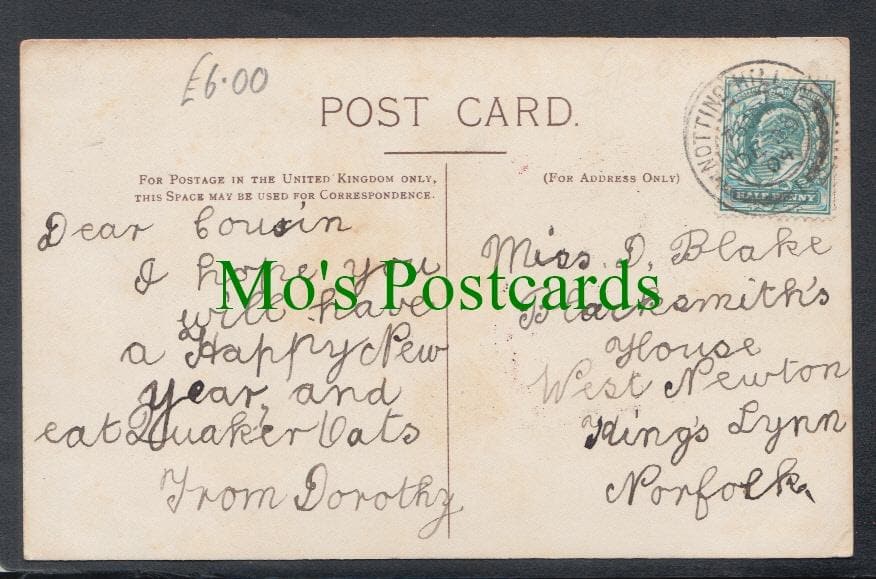 £6.00
POST CARD.
FOR POSTAGE IN THE UNITED KINGDOM ONLY,
THIS SPACE MAY BE USED FOR CORRESPONDENCE.
(FOR ADDRESS ONLY)
NOTTING HILL
DE 30
04
HALFPENNY
Dear Cousin
I hope you
will have
a Happy New
Year, and
eat Quaker Oats
From Dorothy
Miss. D. Blake
Blacksmith's
House
West Newton
King's Lynn
Norfolk.
Mo's Postcards